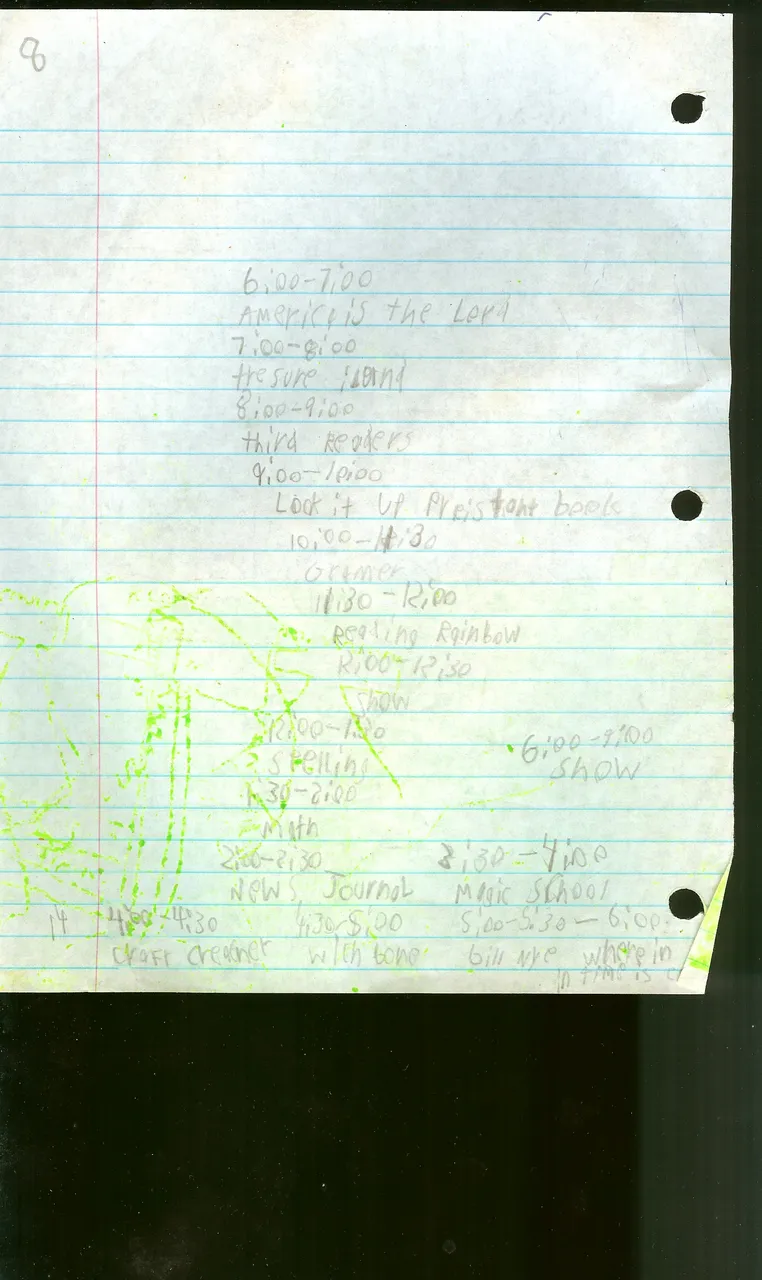 8
6:00-7:00
America is the Lord
7:00-8:00
tresure island
8:00-9:00
third Readers
9:00-10:00
Lock it up books
10:00-11:30
Gramer
11:30-12:00
Reading Rainbow
12:00-12:30
Show
12:00-1:30
Spelling
6:00-9:00
Show
1:30-2:00
Math
2:00-2:30
3:30-4:00
News Journal
Magic School
14
4:00-4:30
4:30-5:00
5:00-5:30-6:00
Craft
with bone
bill nye
where in
in time is